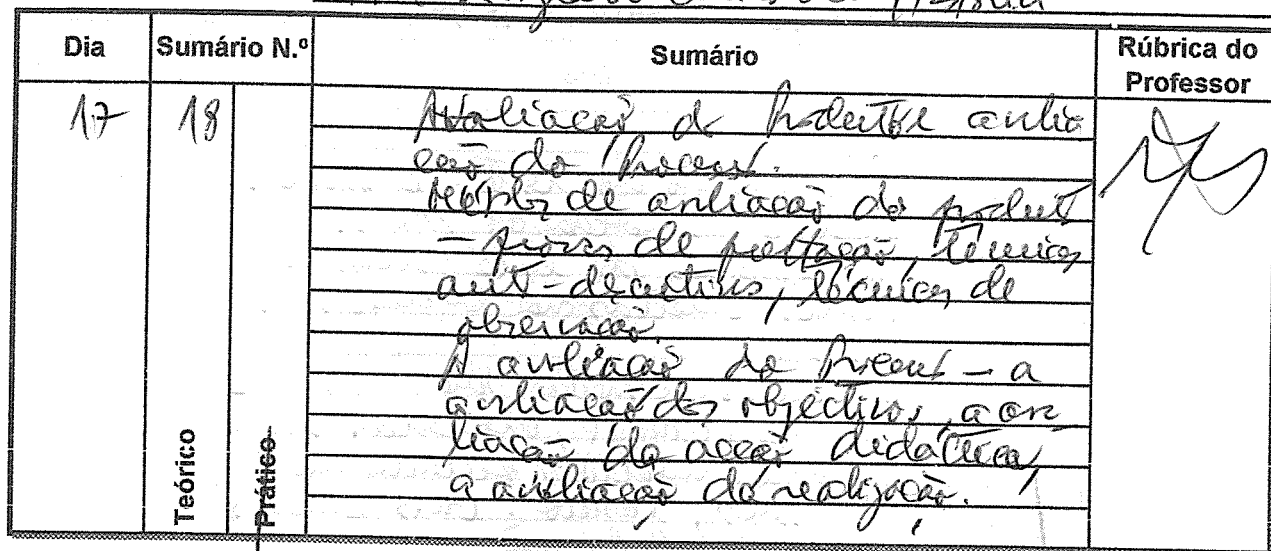 Dia Sumário N.º Sumário Rúbrica do Professor
17 18 Avaliação do Produto e avalia
ção do Processo.
de avaliação do produto
- provas de prestação, técnicas
auto-descritivas, técnicas de
observação.
A avaliação do Processo - a
avaliação dos objectivos, a ava
liação da acção didáctica,
a avaliação da realização.
Teórico
Prático